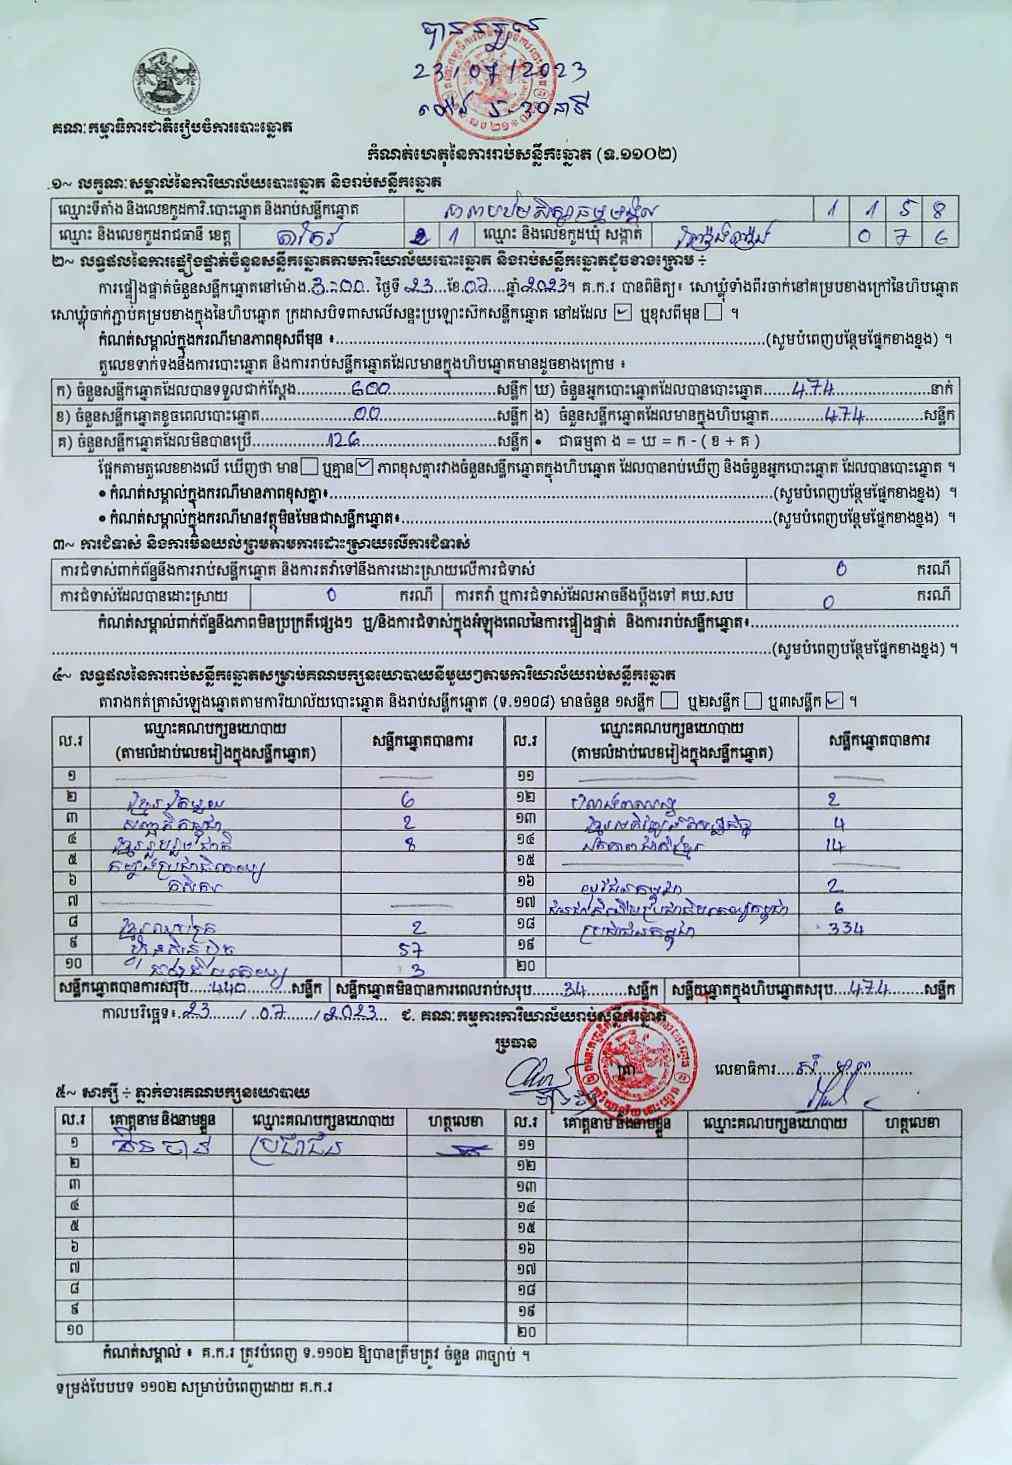 បានឃើញ
23/07/2023
គណៈកម្មាធិការជាតិរៀបចំការបោះឆ្នោត
កំណត់ហេតុនៃការរាប់សន្លឹកឆ្នោត (ទ.១១០២)
១~ លក្ខណៈសម្គាល់នៃការិយាល័យបោះឆ្នោត និងរាប់សន្លឹកឆ្នោត
ឈ្មោះទីតាំង និងលេខកូដការិ.បោះឆ្នោត និងរាប់សន្លឹកឆ្នោត 1 1 5 8
ឈ្មោះ និងលេខកូដរាជធានី ខេត្ត តាកែវ 2 1 ឈ្មោះ និងលេខកូដឃុំ សង្កាត់ 0 7 6
២~ លទ្ធផលនៃការផ្ទៀងផ្ទាត់ចំនួនសន្លឹកឆ្នោតតាមការិយាល័យបោះឆ្នោត និងរាប់សន្លឹកឆ្នោតដូចខាងក្រោម ÷
ការផ្ទៀងផ្ទាត់ចំនួនសន្លឹកឆ្នោតនៅម៉ោង 3-00 ថ្ងៃទី 23 ខែ 07 ឆ្នាំ 2023 ។ គ.ក.រ បានពិនិត្យ៖ សោឃ្លុំទាំងពីរចាក់នៅគម្របខាងក្រៅនៃហិបឆ្នោត
សោឃ្លុំចាក់ភ្ជាប់គម្របខាងក្នុងនៃហិបឆ្នោត ក្រដាសបិទពាសលើសន្ទះប្រឡោះស៊កសន្លឹកឆ្នោត នៅដដែល ☑ ឬខុសពីមុន ☐ ។
កំណត់សម្គាល់ក្នុងករណីមានភាពខុសពីមុន ៖ (សូមបំពេញបន្ថែមផ្នែកខាងខ្នង) ។
តួលេខទាក់ទងនឹងការបោះឆ្នោត និងការរាប់សន្លឹកឆ្នោតដែលមានក្នុងហិបឆ្នោតមានដូចខាងក្រោម ៖
ក) ចំនួនសន្លឹកឆ្នោតដែលបានទទួលជាក់ស្ដែង 600 សន្លឹក ឃ) ចំនួនអ្នកបោះឆ្នោតដែលបានបោះឆ្នោត 474 នាក់
ខ) ចំនួនសន្លឹកឆ្នោតខូចពេលបោះឆ្នោត 00 សន្លឹក ង) ចំនួនសន្លឹកឆ្នោតដែលមានក្នុងហិបឆ្នោត 474 សន្លឹក
គ) ចំនួនសន្លឹកឆ្នោតដែលមិនបានប្រើ 126 សន្លឹក • ជាធម្មតា ង = ឃ = ក - ( ខ + គ )
ផ្អែកតាមតួលេខខាងលើ ឃើញថា មាន ☐ ឬគ្មាន ☑ ភាពខុសគ្នារវាងចំនួនសន្លឹកឆ្នោតក្នុងហិបឆ្នោត ដែលបានរាប់ឃើញ និងចំនួនអ្នកបោះឆ្នោត ដែលបានបោះឆ្នោត ។
• កំណត់សម្គាល់ក្នុងករណីមានភាពខុសគ្នា៖ (សូមបំពេញបន្ថែមផ្នែកខាងខ្នង) ។
• កំណត់សម្គាល់ក្នុងករណីមានវត្ថុមិនមែនជាសន្លឹកឆ្នោត៖ (សូមបំពេញបន្ថែមផ្នែកខាងខ្នង) ។
៣~ ការជំទាស់ និងការមិនយល់ព្រមតាមការដោះស្រាយលើការជំទាស់
ការជំទាស់ពាក់ព័ន្ធនឹងការរាប់សន្លឹកឆ្នោត និងការតវ៉ាទៅនឹងការដោះស្រាយលើការជំទាស់ 0 ករណី
ការជំទាស់ដែលបានដោះស្រាយ 0 ករណី ការតវ៉ា ឬការជំទាស់ដែលអាចនឹងប្ដឹងទៅ គឃ.សប 0 ករណី
កំណត់សម្គាល់ពាក់ព័ន្ធនឹងភាពមិនប្រក្រតីផ្សេងៗ ឬ/និងការជំទាស់ក្នុងអំឡុងពេលនៃការផ្ទៀងផ្ទាត់ និងការរាប់សន្លឹកឆ្នោត៖
(សូមបំពេញបន្ថែមផ្នែកខាងខ្នង) ។
៤~ លទ្ធផលនៃការរាប់សន្លឹកឆ្នោតសម្រាប់គណបក្សនយោបាយនីមួយៗតាមការិយាល័យរាប់សន្លឹកឆ្នោត
តារាងកត់ត្រាសំឡេងឆ្នោតតាមការិយាល័យបោះឆ្នោត និងរាប់សន្លឹកឆ្នោត (ទ.១១០៨) មានចំនួន ១សន្លឹក ☐ ឬ២សន្លឹក ☐ ឬ៣សន្លឹក ☑ ។
ល.រ ឈ្មោះគណបក្សនយោបាយ (តាមលំដាប់លេខរៀងក្នុងសន្លឹកឆ្នោត) សន្លឹកឆ្នោតបានការ ល.រ ឈ្មោះគណបក្សនយោបាយ (តាមលំដាប់លេខរៀងក្នុងសន្លឹកឆ្នោត) សន្លឹកឆ្នោតបានការ
១ ១១
២ ខ្មែរតែមួយ 6 ១២ 2
៣ សញ្ជាតិកម្ពុជា 2 ១៣ 4
៤ ខ្មែររួបរួមជាតិ 8 ១៤ 14
៥ កម្លាំងប្រជាធិបតេយ្យ ១៥
៦ កសិករ ១៦ យុវជនកម្ពុជា 2
៧ ១៧ 6
៨ 2 ១៨ ប្រជាជនកម្ពុជា 334
៩ ហ្វ៊ុនស៊ិនប៉ិច 57 ១៩
១០ 3 ២០
សន្លឹកឆ្នោតបានការសរុប 440 សន្លឹក សន្លឹកឆ្នោតមិនបានការពេលរាប់សរុប 34 សន្លឹក សន្លឹកឆ្នោតក្នុងហិបឆ្នោតសរុប 474 សន្លឹក
កាលបរិច្ឆេទ៖ 23 / 07 / 2023 ជ. គណៈកម្មការការិយាល័យរាប់សន្លឹកឆ្នោត
ប្រធាន
លេខាធិការ
៥~ សាក្សី ÷ ភ្នាក់ងារគណបក្សនយោបាយ
ល.រ គោត្តនាម និងនាមខ្លួន ឈ្មោះគណបក្សនយោបាយ ហត្ថលេខា ល.រ គោត្តនាម និងនាមខ្លួន ឈ្មោះគណបក្សនយោបាយ ហត្ថលេខា
១ ប្រជាជន ១១
២ ១២
៣ ១៣
៤ ១៤
៥ ១៥
៦ ១៦
៧ ១៧
៨ ១៨
៩ ១៩
១០ ២០
កំណត់សម្គាល់ ៖ គ.ក.រ ត្រូវបំពេញ ទ.១១០២ ឱ្យបានត្រឹមត្រូវ ចំនួន ៣ច្បាប់ ។
ទម្រង់បែបបទ ១១០២ សម្រាប់បំពេញដោយ គ.ក.រ